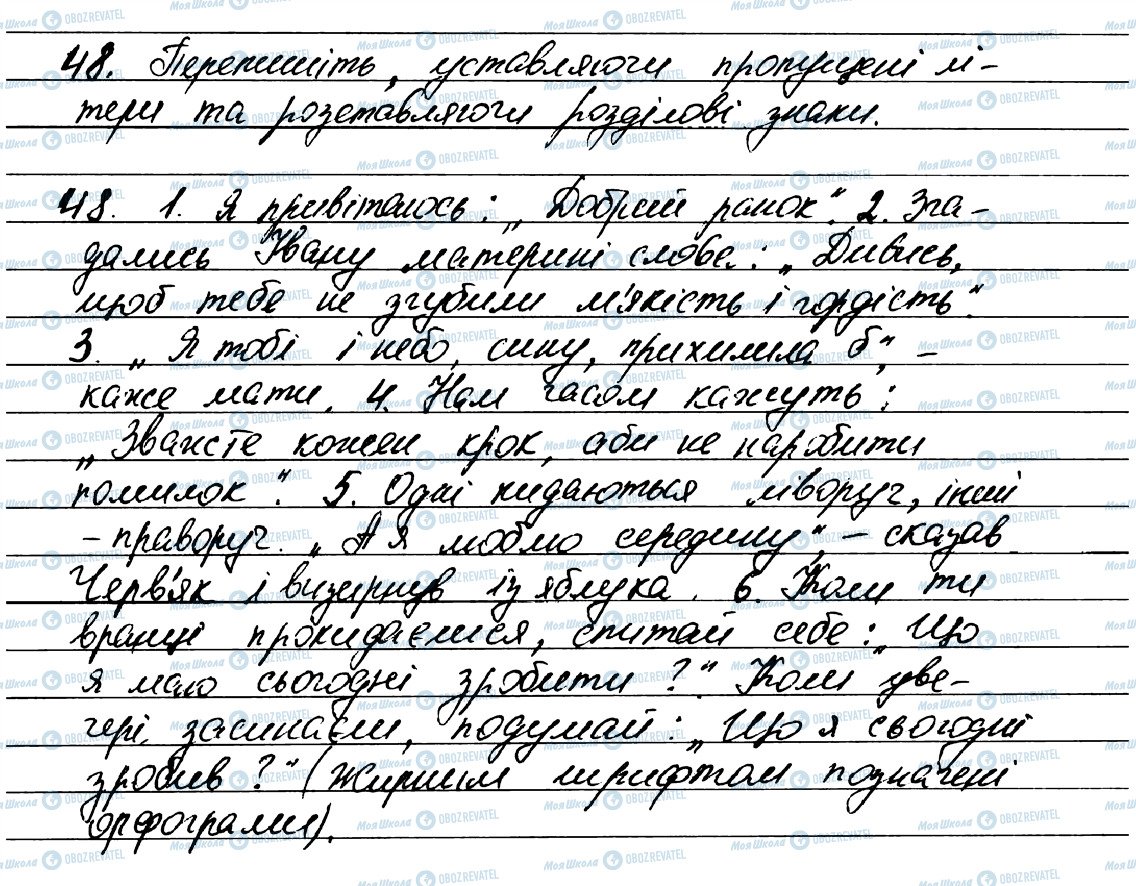 48. Перепишіть, уставляючи пропущені лі-
тери та розставляючи розділові знаки.
48. 1. Я привіталось: „Добрий ранок". 2. Зга-
дались Івану материні слова: „Дивись,
щоб тебе не згубили м'якість і гордість".
3. „Я тобі і небо, сину, прихилила б", –
каже мати. 4. Нам часом кажуть:
„Зважсте кожен крок, аби не наробити
помилок". 5. Одні кидаються ліворуч, інші
– праворуч. „А я люблю середину", – сказав
Черв'як і визирнув із яблука. 6. Коли ти
вранці прокидаєшся, спитай себе: „Що
я маю сьогодні зробити?" Коли уве-
чері засинаєш, подумай: „Що я сьогодні
зробив?" (Жирним шрифтом позначені
орфограми).